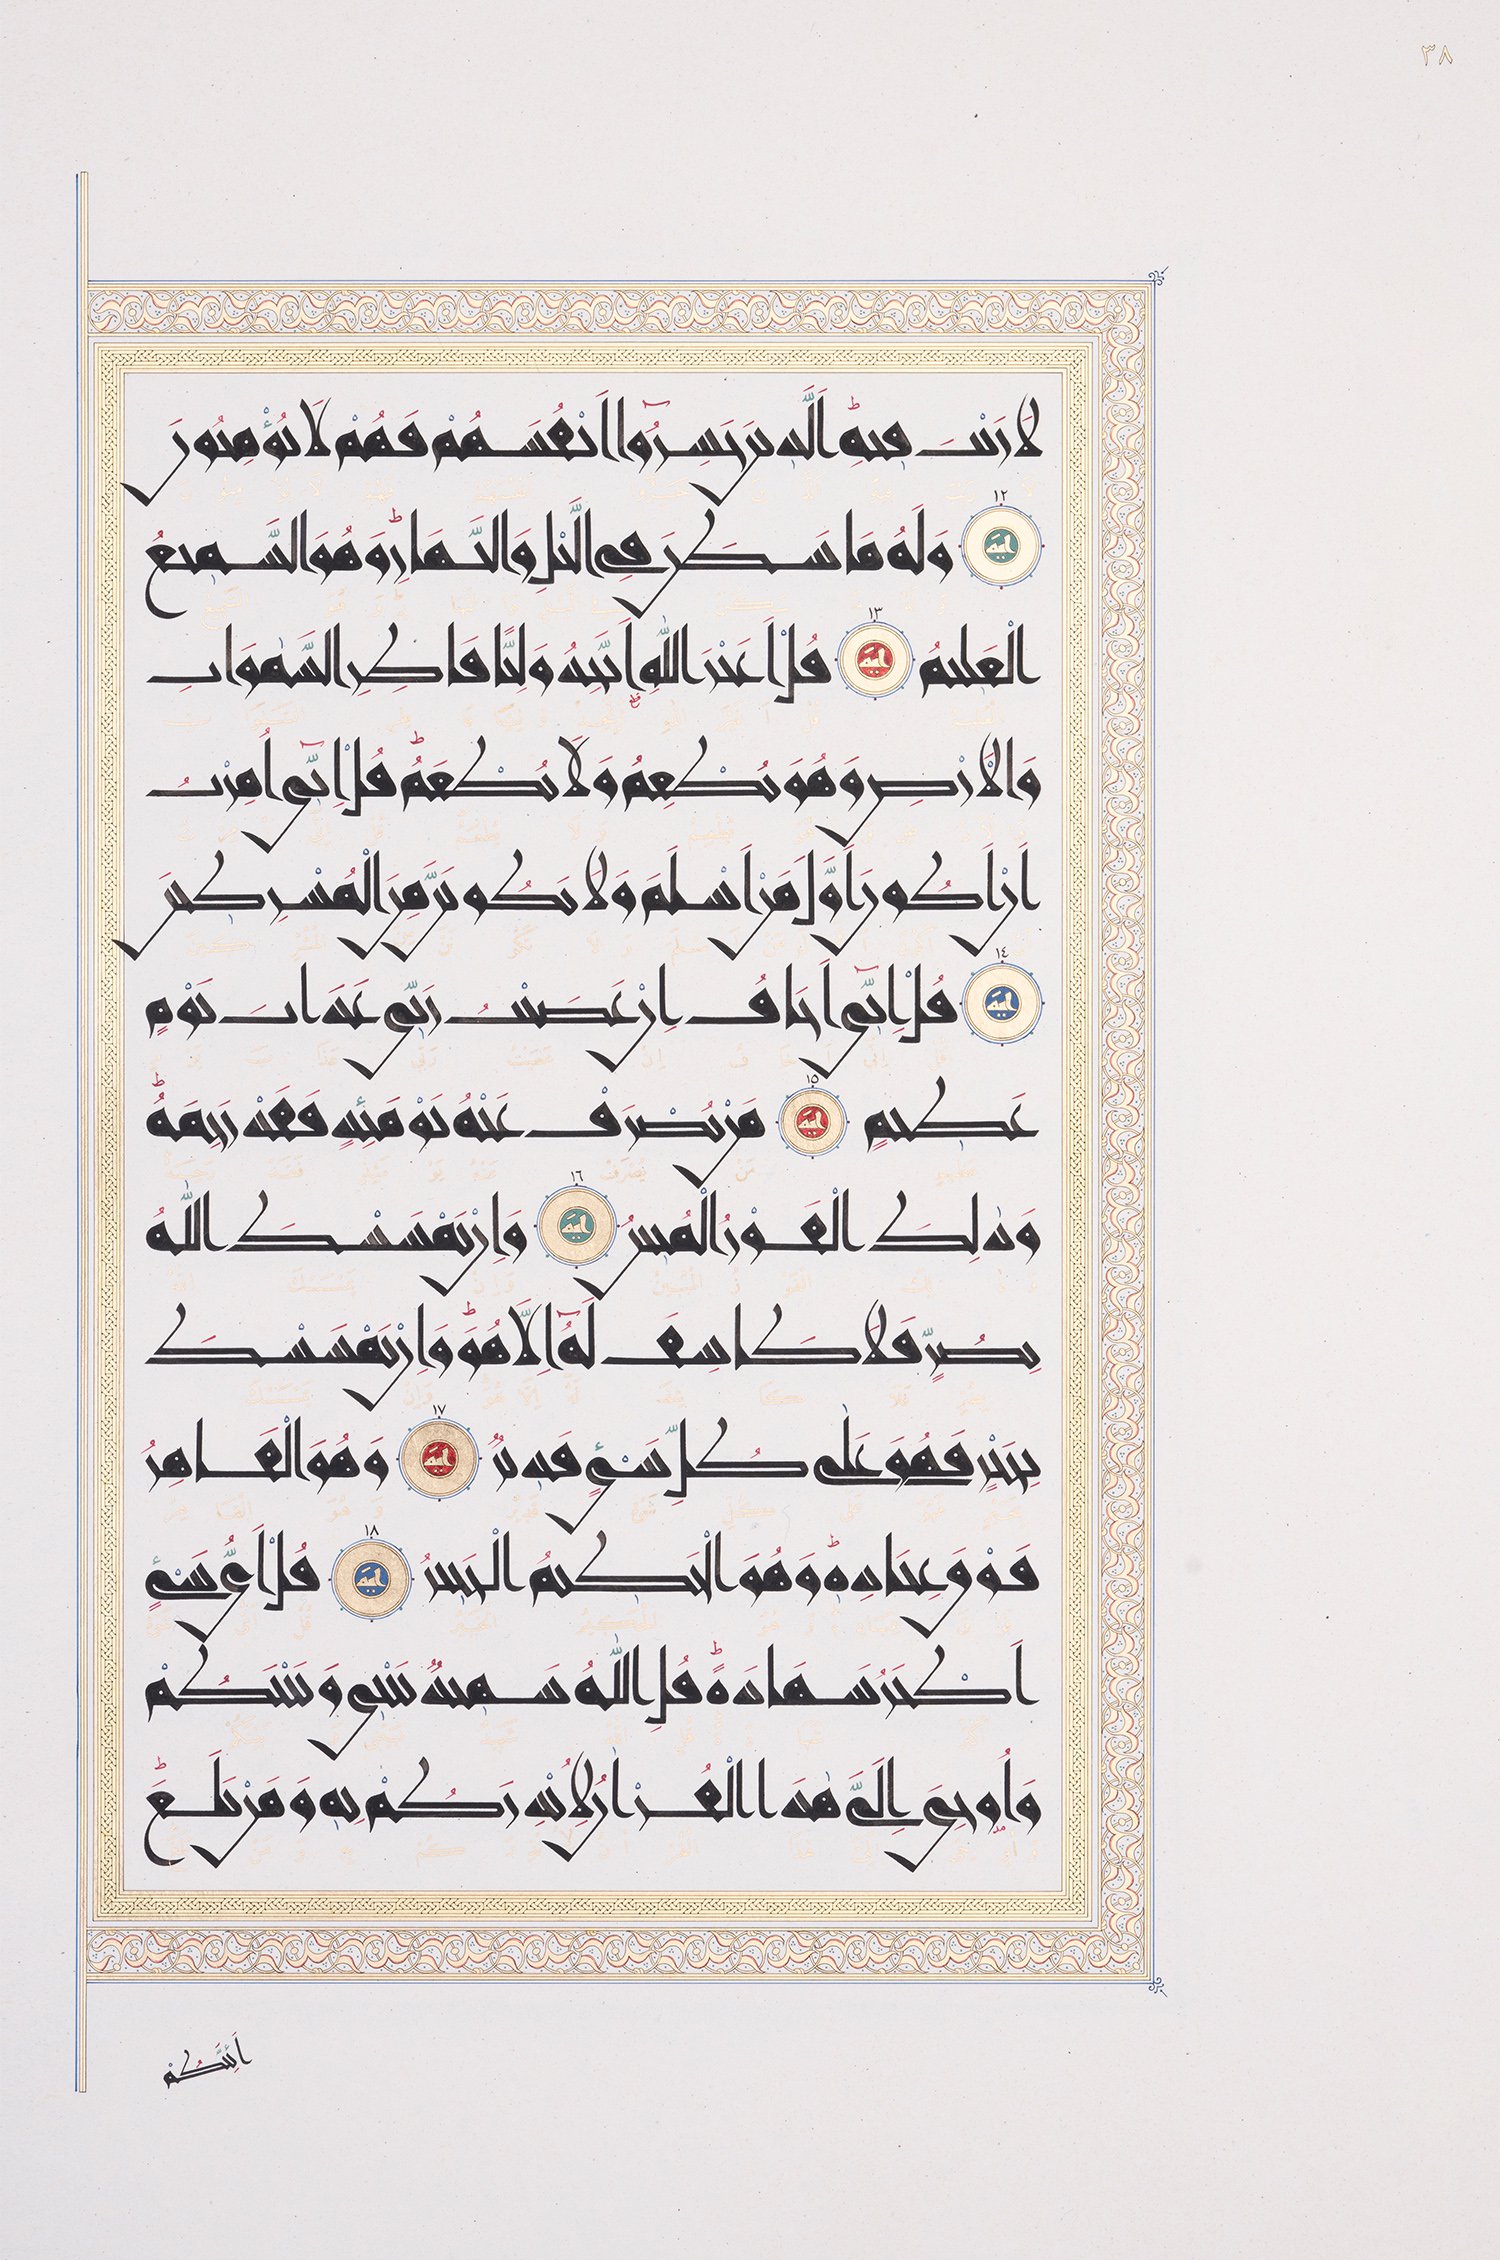 ٣٨
لَا رَيْبَ فِيهِۚ اَلَّذ۪ينَ خَسِرُٓوا اَنْفُسَهُمْ فَهُمْ لَا يُؤْمِنُونَ
١٢ اية وَلَهُ مَا سَكَنَ فِي الَّيْلِ وَالنَّهَارِۜ وَهُوَ السَّم۪يعُ
الْعَل۪يمُ ١٣ اية قُلْ اَغَيْرَ اللّٰهِ اَتَّخِذُ وَلِيًّا فَاطِرِ السَّمٰوَاتِ
وَالْاَرْضِ وَهُوَ يُطْعِمُ وَلَا يُطْعَمُۜ قُلْ اِنّ۪ٓي اُمِرْتُ
اَنْ اَكُونَ اَوَّلَ مَنْ اَسْلَمَ وَلَا تَكُونَنَّ مِنَ الْمُشْرِك۪ينَ
١٤ اية قُلْ اِنّ۪ٓي اَخَافُ اِنْ عَصَيْتُ رَبّ۪ي عَذَابَ يَوْمٍ
عَظ۪يمٍ ١٥ اية مَنْ يُصْرَفْ عَنْهُ يَوْمَئِذٍ فَقَدْ رَحِمَهُۜ
وَذٰلِكَ الْفَوْزُ الْمُب۪ينُ ١٦ اية وَاِنْ يَمْسَسْكَ اللّٰهُ
بِضُرٍّ فَلَا كَاشِفَ لَهُٓ اِلَّا هُوَۜ وَاِنْ يَمْسَسْكَ
بِخَيْرٍ فَهُوَ عَلٰى كُلِّ شَيْءٍ قَد۪يرٌ ١٧ اية وَهُوَ الْقَاهِرُ
فَوْقَ عِبَادِه۪ۜ وَهُوَ الْحَك۪يمُ الْخَب۪يرُ ١٨ اية قُلْ اَيُّ شَيْءٍ
اَكْبَرُ شَهَادَةًۜ قُلِ اللّٰهُ شَه۪يدٌ بَيْن۪ي وَبَيْنَكُمْ
وَاُو۫حِيَ اِلَيَّ هٰذَا الْقُرْاٰنُ لِاُنْذِرَكُمْ بِه۪ وَمَنْ بَلَغَۜ
اَئِنَّكُمْ